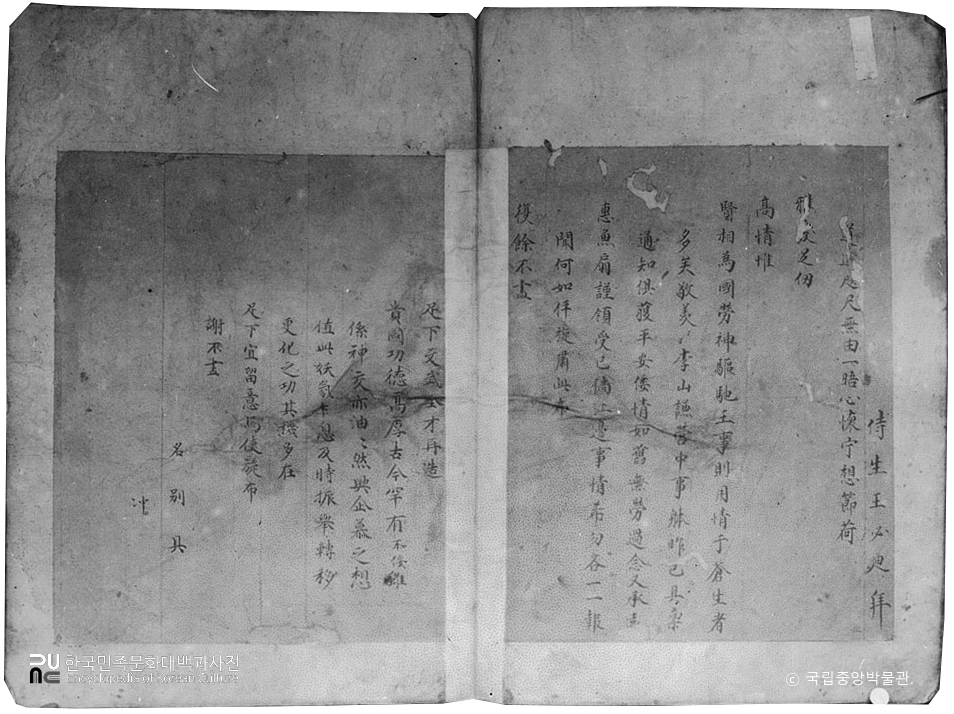 侍生王必迪拜
咫尺無由一晤心懷寧想節荷
雅
足仞
高情堆
賢相為國勞神驅馳王事則用情于蒼生者
多矣敬羨々李山謙營中事昨已具稟
通知俱獲平安倭情如舊無勞過念又承
惠魚扇謹領受已倘江邊事情希勿吝一二報
聞何如伻旋肅此布
復餘不盡
足下文武全才再造
貴國功德高厚古今罕有不佞雖
係神交亦油々然興企慕之想
值此妖氛 息及時振舉轉移
更化之功其機多在
足下宜留意焉使旋布
謝不盡
名別具
沖
한국민족문화대백과사전
Encyclopedia of Korean Culture
© 국립중앙박물관.